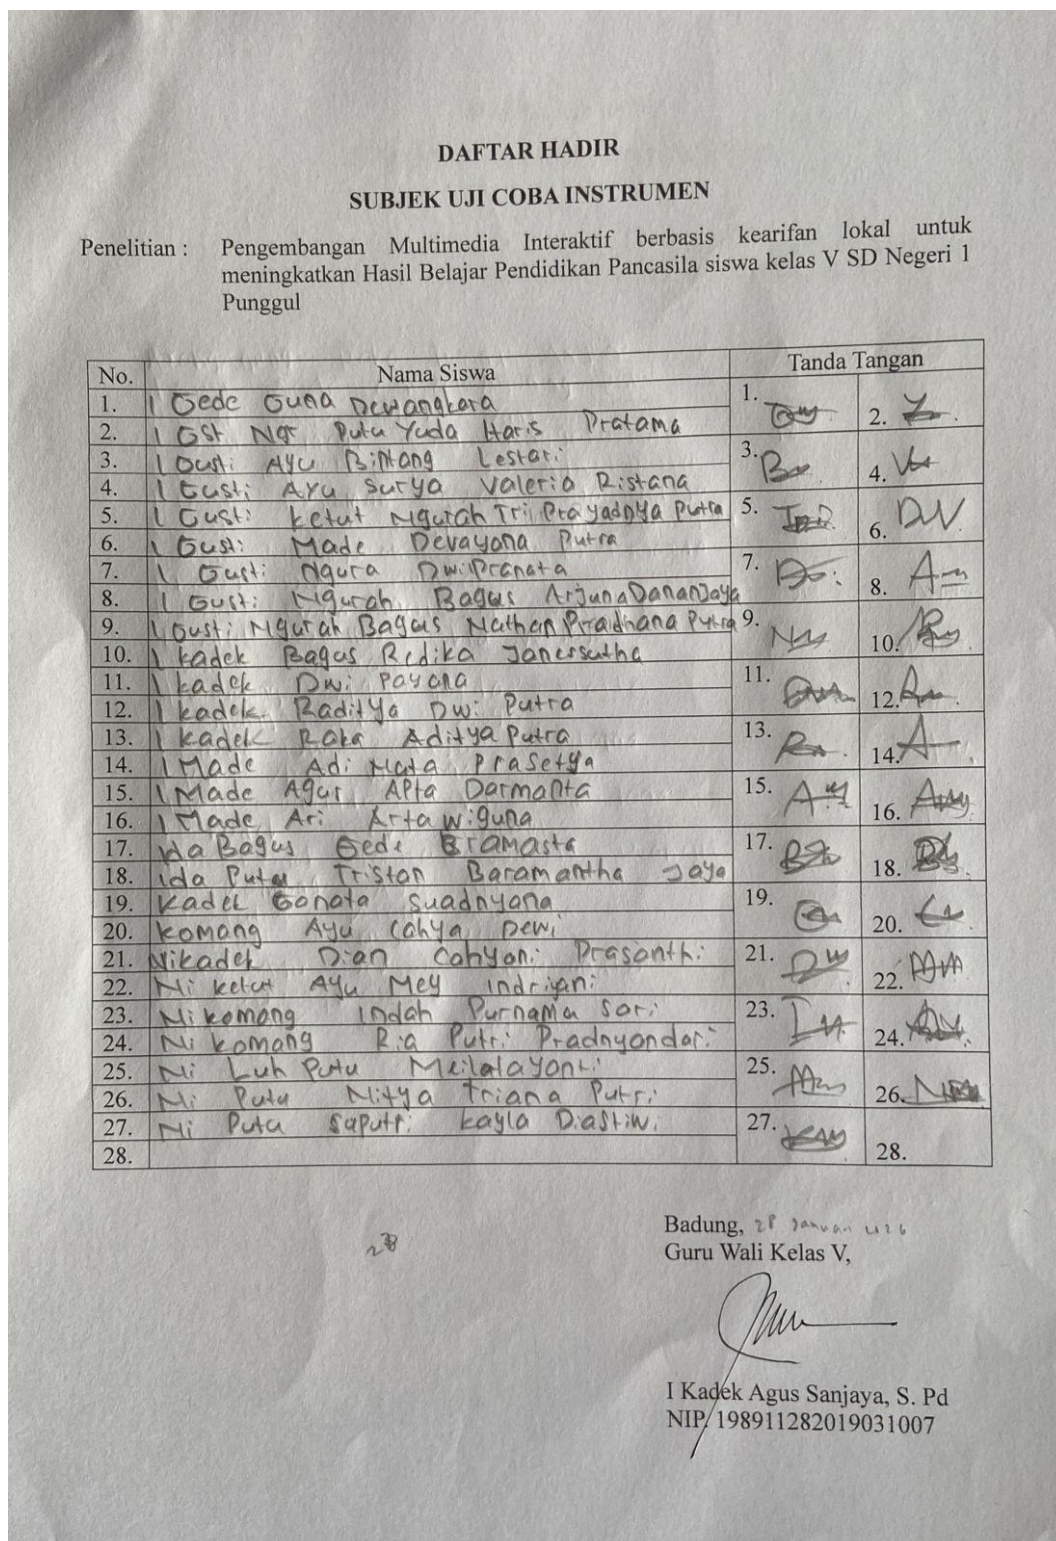 DAFTAR HADIR
SUBJEK UJI COBA INSTRUMEN
Penelitian : Pengembangan Multimedia Interaktif berbasis kearifan lokal untuk
meningkatkan Hasil Belajar Pendidikan Pancasila siswa kelas V SD Negeri 1
Punggul
No. Nama Siswa Tanda Tangan
1. I Gede Guna Dewangkara 1.
2. I GST Ngr Putu Yuda Haris Pratama 2.
3. I Gusti Ayu Bintang Lestari 3.
4. I Gusti Ayu Surya Valeria Ristana 4.
5. I Gusti Ketut Ngurah Tri Prayadnya Putra 5.
6. I Gusti Made Devayana Putra 6. DV
7. I Gusti Ngura Dwi Pranata 7.
8. I Gusti Ngurah Bagus Arjuna Dananjaya 8.
9. I Gusti Ngurah Bagus Nathan Pradhana Putra 9.
10. I Kadek Bagus Redika 10.
11. I Kadek Dwi Payana 11.
12. I Kadek Raditya Dwi Putra 12.
13. I Kadek Raka Aditya Putra 13.
14. I Made Adi Nata Prasetya 14.
15. I Made Agus Apta Darmanta 15.
16. I Made Ari Arta Wiguna 16.
17. Ida Bagus Gede Bramasta 17.
18. Ida Putu Tristan Baramantha Jaya 18.
19. Kadek Ganata Suadnyana 19.
20. Komang Ayu Cahya Dewi 20.
21. Ni Kadek Dian Cahyani Prasanthi 21.
22. Ni Ketut Ayu Mey Indriyani 22.
23. Ni Komang Indah Purnama Sari 23.
24. Ni Komang Ria Putri Pradnyandari 24.
25. Ni Luh Putu 25.
26. Ni Putu Nitya Triana Putri 26.
27. Ni Putu Saputri Kayla Diastiwi 27.
28. 28.
Badung, 28 Januari 2026
Guru Wali Kelas V,
I Kadek Agus Sanjaya, S. Pd
NIP. 198911282019031007